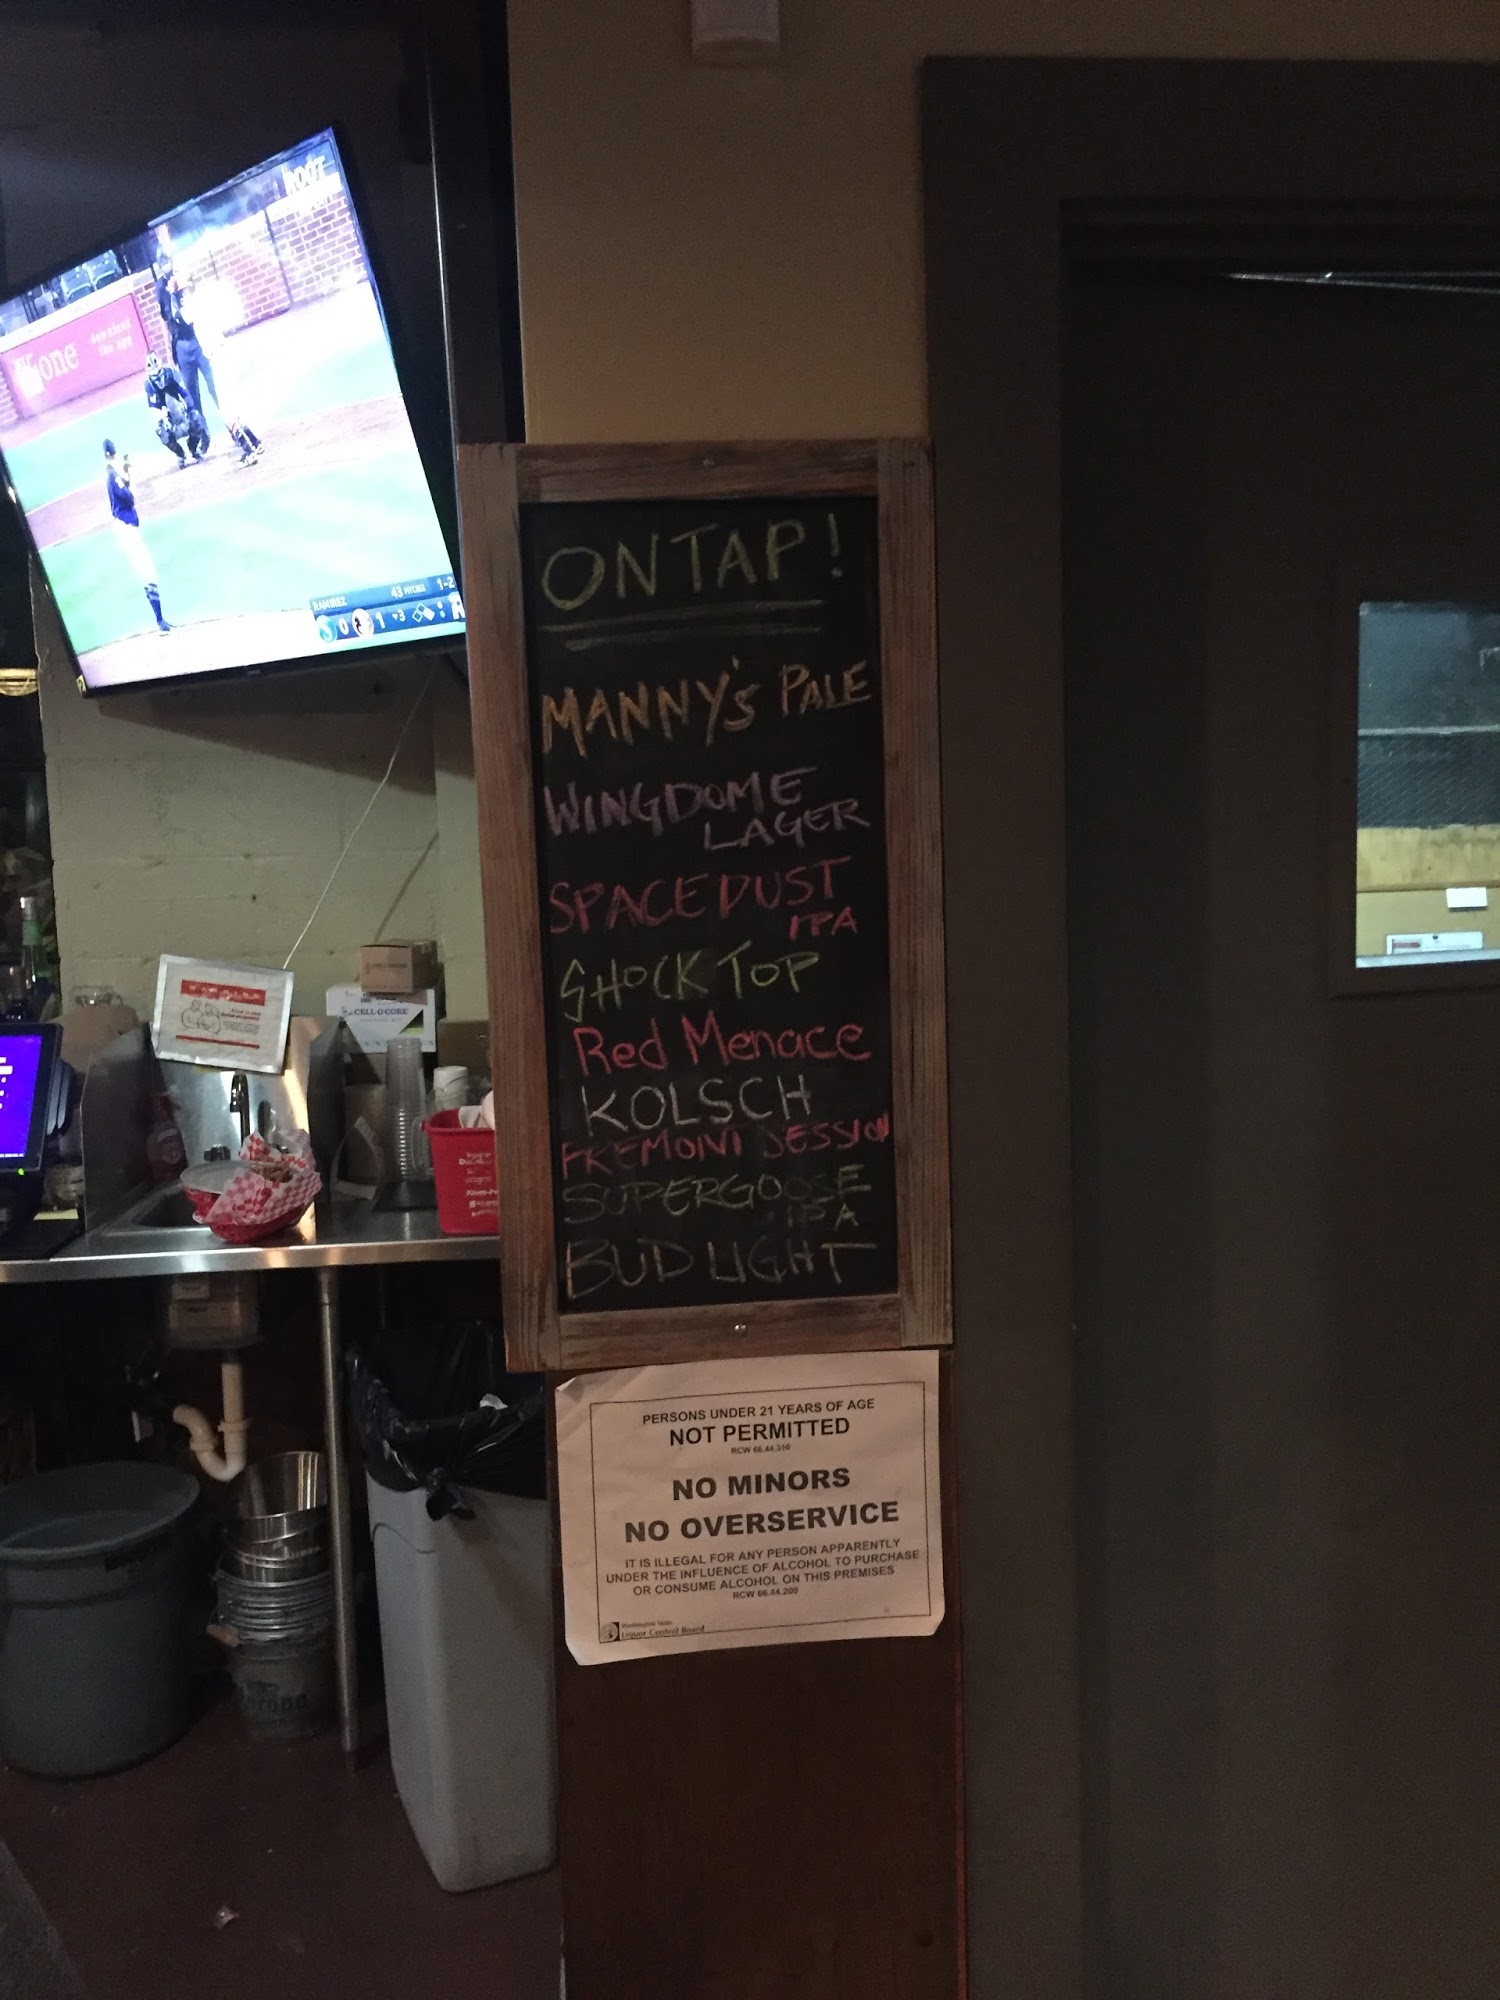 ROOT
one
download
the app
RAMIREZ
43 PITCHES 1-2
0 1 3
CELL-O-CORE
ON TAP!
MANNY'S PALE
WINGDOME
LAGER
SPACEDUST
IPA
SHOCK TOP
Red Menace
KOLSCH
FREMONT SESSION
SUPERGOOSE
IPA
BUD LIGHT
PERSONS UNDER 21 YEARS OF AGE
NOT PERMITTED
RCW 66.44.310
NO MINORS
NO OVERSERVICE
IT IS ILLEGAL FOR ANY PERSON APPARENTLY
UNDER THE INFLUENCE OF ALCOHOL TO PURCHASE
OR CONSUME ALCOHOL ON THIS PREMISES
RCW 66.44.200
Washington State
Liquor Control Board
Corona